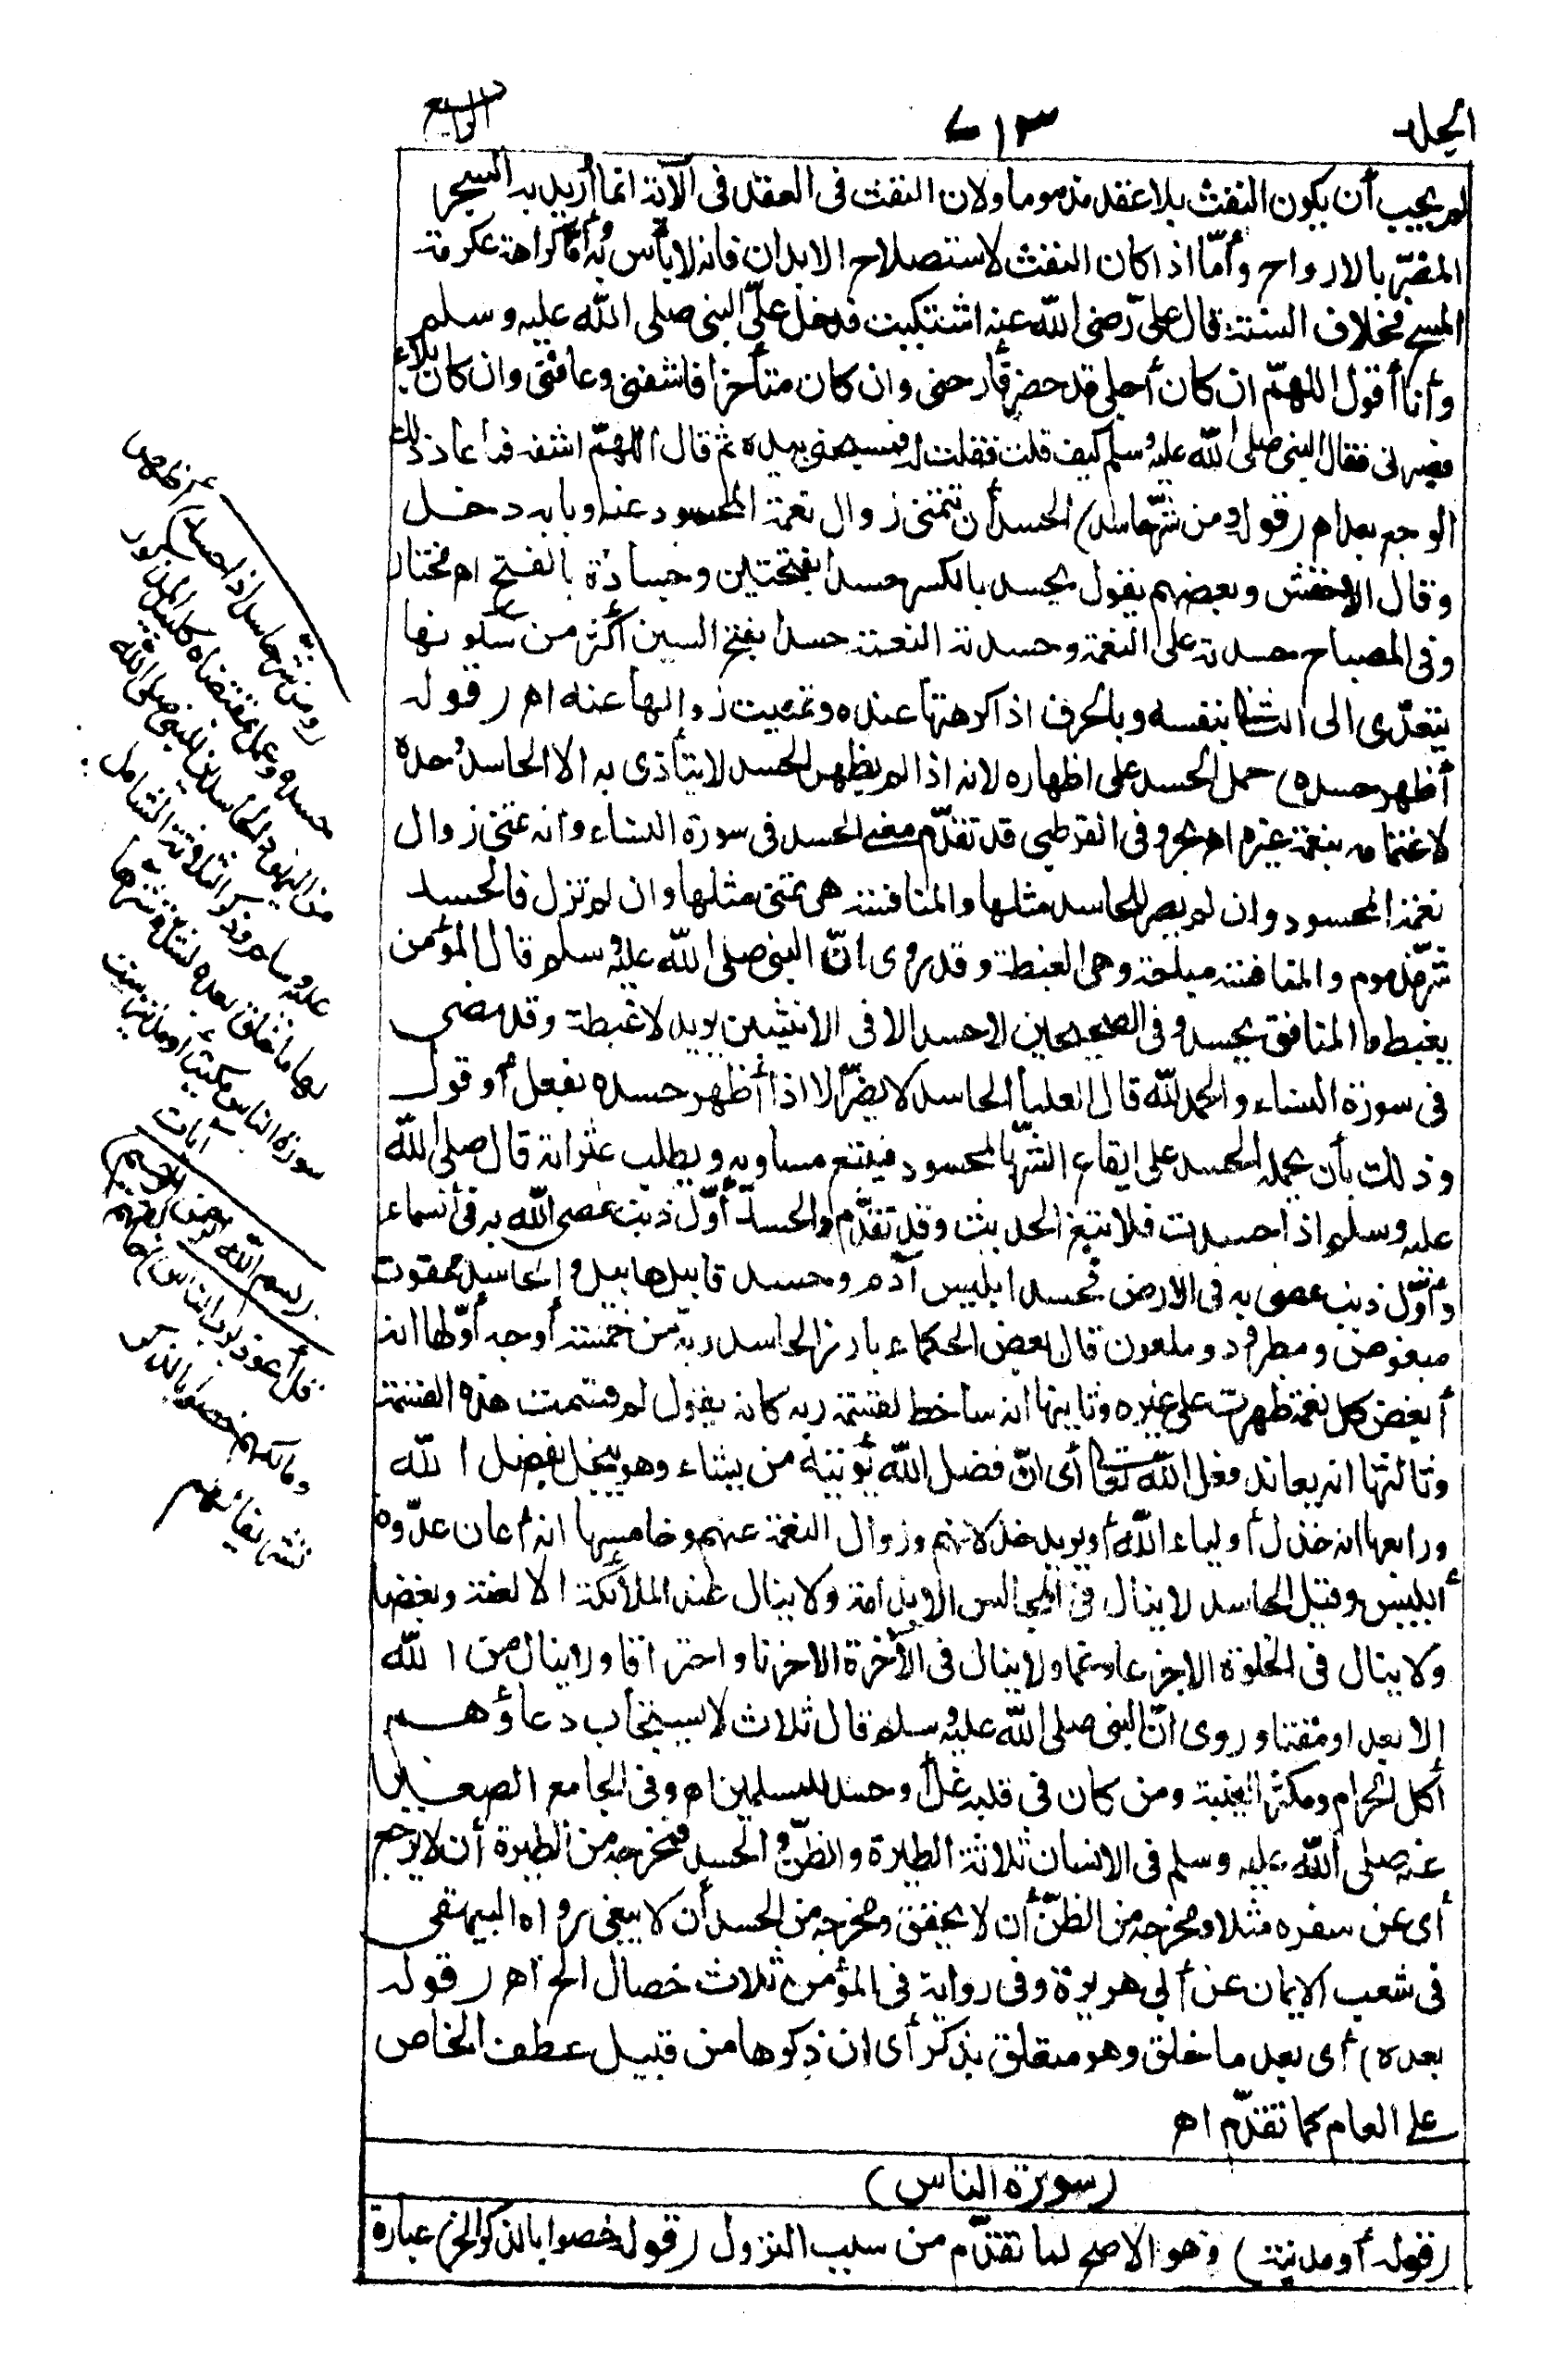 المجلد
٦١٣
الرابع
لم يجب أن يكون النفث بلا عقد مذموما ولان النفث فى العقد فى الآية انما أريد به السحر
المضر بالارواح وأمّا اذا كان النفث لاستصلاح الابدان فانه لا بأس به وأما كراهة عكرمة
المسح فخلاف السنة قال علىّ رضى الله عنه اشتكيت فدخل علىّ النبى صلى الله عليه وسلم
وأنا أقول اللهمّ ان كان أجلى قد حضر فأرحنى وان كان متأخرا فاشفنى وعافنى وان كان بلاء
فصبرنى فقال النبى صلى الله عليه وسلم كيف قلت فقلت له فمسحنى بيده ثم قال اللهمّ اشفه فما عاد ذلك
الوجع بعد اه (قوله ومن شرّ حاسد) الحسد أن تتمنى زوال نعمة المحسود عنه وبابه دخل
وقال الاخفش وبعضهم يقول يحسد بالكسر حسدا بفتحتين وحسادة بالفتح اه مختار
وفى المصباح حسدته على النعمة وحسدته النعمة حسدا بفتح السين أكثر من سكونها
يتعدّى الى الثانى بنفسه وبالحرف اذا كرهتها عنده وتمنيت زوالها عنه اه (قوله
أظهر حسده) حمل الحسد على اظهاره لانه اذا لم يظهر الحسد لا يتأذى به الا الحاسد وحده
لاغتمامه بنعمة غيره اه بحر وفى القرطبى قد تقدّم معنى الحسد فى سورة النساء وانه تمنى زوال
نعمة المحسود وان لم يصر للحاسد مثلها والمنافسة هى تمنى مثلها وان لم تزل فالحسد
شرّ مذموم والمنافسة مباحة وهى الغبطة وقد روى انّ النبى صلى الله عليه وسلم قال المؤمن
يغبط والمنافق يحسد وفى الصحيحين لا حسد الا فى اثنتين يريد لا غبطة وقد مضى
فى سورة النساء والحمد لله قال العلماء الحاسد لا يضرّ الا اذا أظهر حسده بفعل أو قول
وذلك بأن يحمله الحسد على ايقاع الشرّ بالمحسود فيتتبع مساويه ويطلب عثراته قال صلى الله
عليه وسلم اذا حسدت فلا تبغ الحديث وقد تقدّم والحسد أوّل ذنب عصى الله به فى السماء
وأوّل ذنب عصى به فى الارض فحسد ابليس آدم وحسد قابيل هابيل والحاسد ممقوت
مبغوض ومطرود وملعون قال بعض الحكماء بارز الحاسد ربه من خمسة أوجه أوّلها انه
أبغض كل نعمة ظهرت على غيره وثانيها انه ساخط لقسمة ربه كانه يقول لم قسمت هذه القسمة
وثالثها انه يعاند فعل الله تعالى أى انّ فضل الله يؤتيه من يشاء وهو يبخل بفضل الله
ورابعها انه خذل أولياء الله أو يريد خذلانهم وزوال النعمة عنهم وخامسها انه أعان عدوّه
ابليس وقيل الحاسد لا ينال فى المجالس الا ندامة ولا ينال عند الملائكة الا لعنة وبغضا
ولا ينال فى الخلوة الا جزعا وغما ولا ينال فى الآخرة الا حزنا واحتراقا ولا ينال من الله
الا بعدا ومقتا وروى انّ النبى صلى الله عليه وسلم قال ثلاث لا يستجاب دعاؤهم
آكل الحرام ومكثر الغيبة ومن كان فى قلبه غل أو حسد للمسلمين اه وفى الجامع الصغير
عنه صلى الله عليه وسلم فى الانسان ثلاثة الطيرة والظنّ والحسد فمخرجه من الطيرة أن لا يرجع
أى عن سفره مثلا ومخرجه من الظنّ أن لا يحقق ومخرجه من الحسد أن لا يبغى رواه البيهقى
فى شعب الايمان عن أبى هريرة وفى رواية فى المؤمن ثلاث خصال الخ اه (قوله
بعده) أى بعد ما خلق وهو متعلق بذكر أى ان ذكرها من قبيل عطف الخاص
على العام كما تقدّم اه
(سورة الناس)
(قوله أو مدنية) وهو الاصح لما تقدّم من سبب النزول (قوله خصوا بالذكر الخ) عبارة
(ومن شر حاسد اذا حسد) أظهر
حسده وعمل بمقتضاه كلبيد المذكور
من اليهود الحاسدين للنبى صلى الله
عليه وسلم وذكر الثلاثة الشامل
لها ما خلق بعده لشدة شرها
سورة الناس مكية أو مدنية ست
آيات
(بسم الله الرحمن الرحيم
قل أعوذ برب الناس) خالقهم
ومالكهم خصوا بالذكر